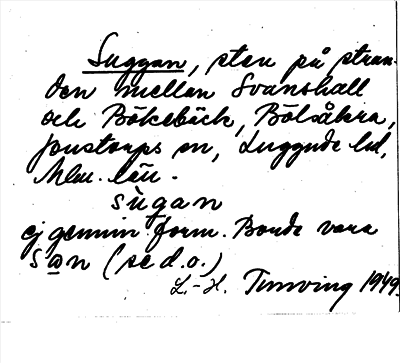 Suggan, sten på stran-
den mellan Svanshall
och Bökebäck, Bölsåkra,
Jonstorps sn, Luggude hd,
Mlm. län.
sùgan
ej genuin form. Borde vara
San (se d.o.)
L.-H. Tunving 1949.